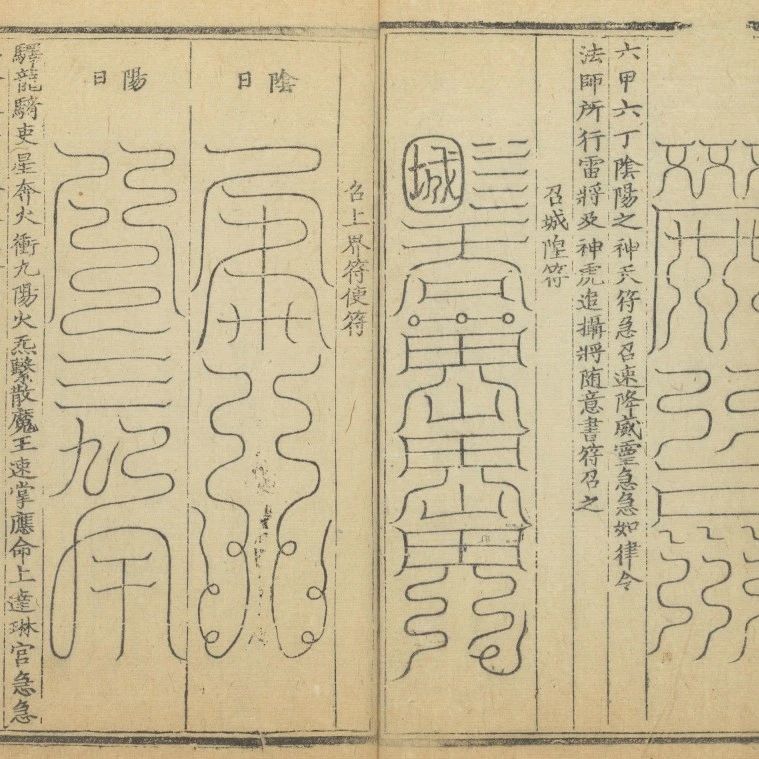 六甲六丁陰陽之神天符急召速降威靈急急如律令
法師所行雷將及神虎追攝將随意書符召之
召城隍符
城
召上界符使符
陰日
陽日
驛龍騎吏星奔火衝九陽火炁繫散魔王速掌應命上達琳宮急急